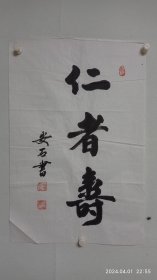 仁者壽
安石書
2024.04.01 22:55